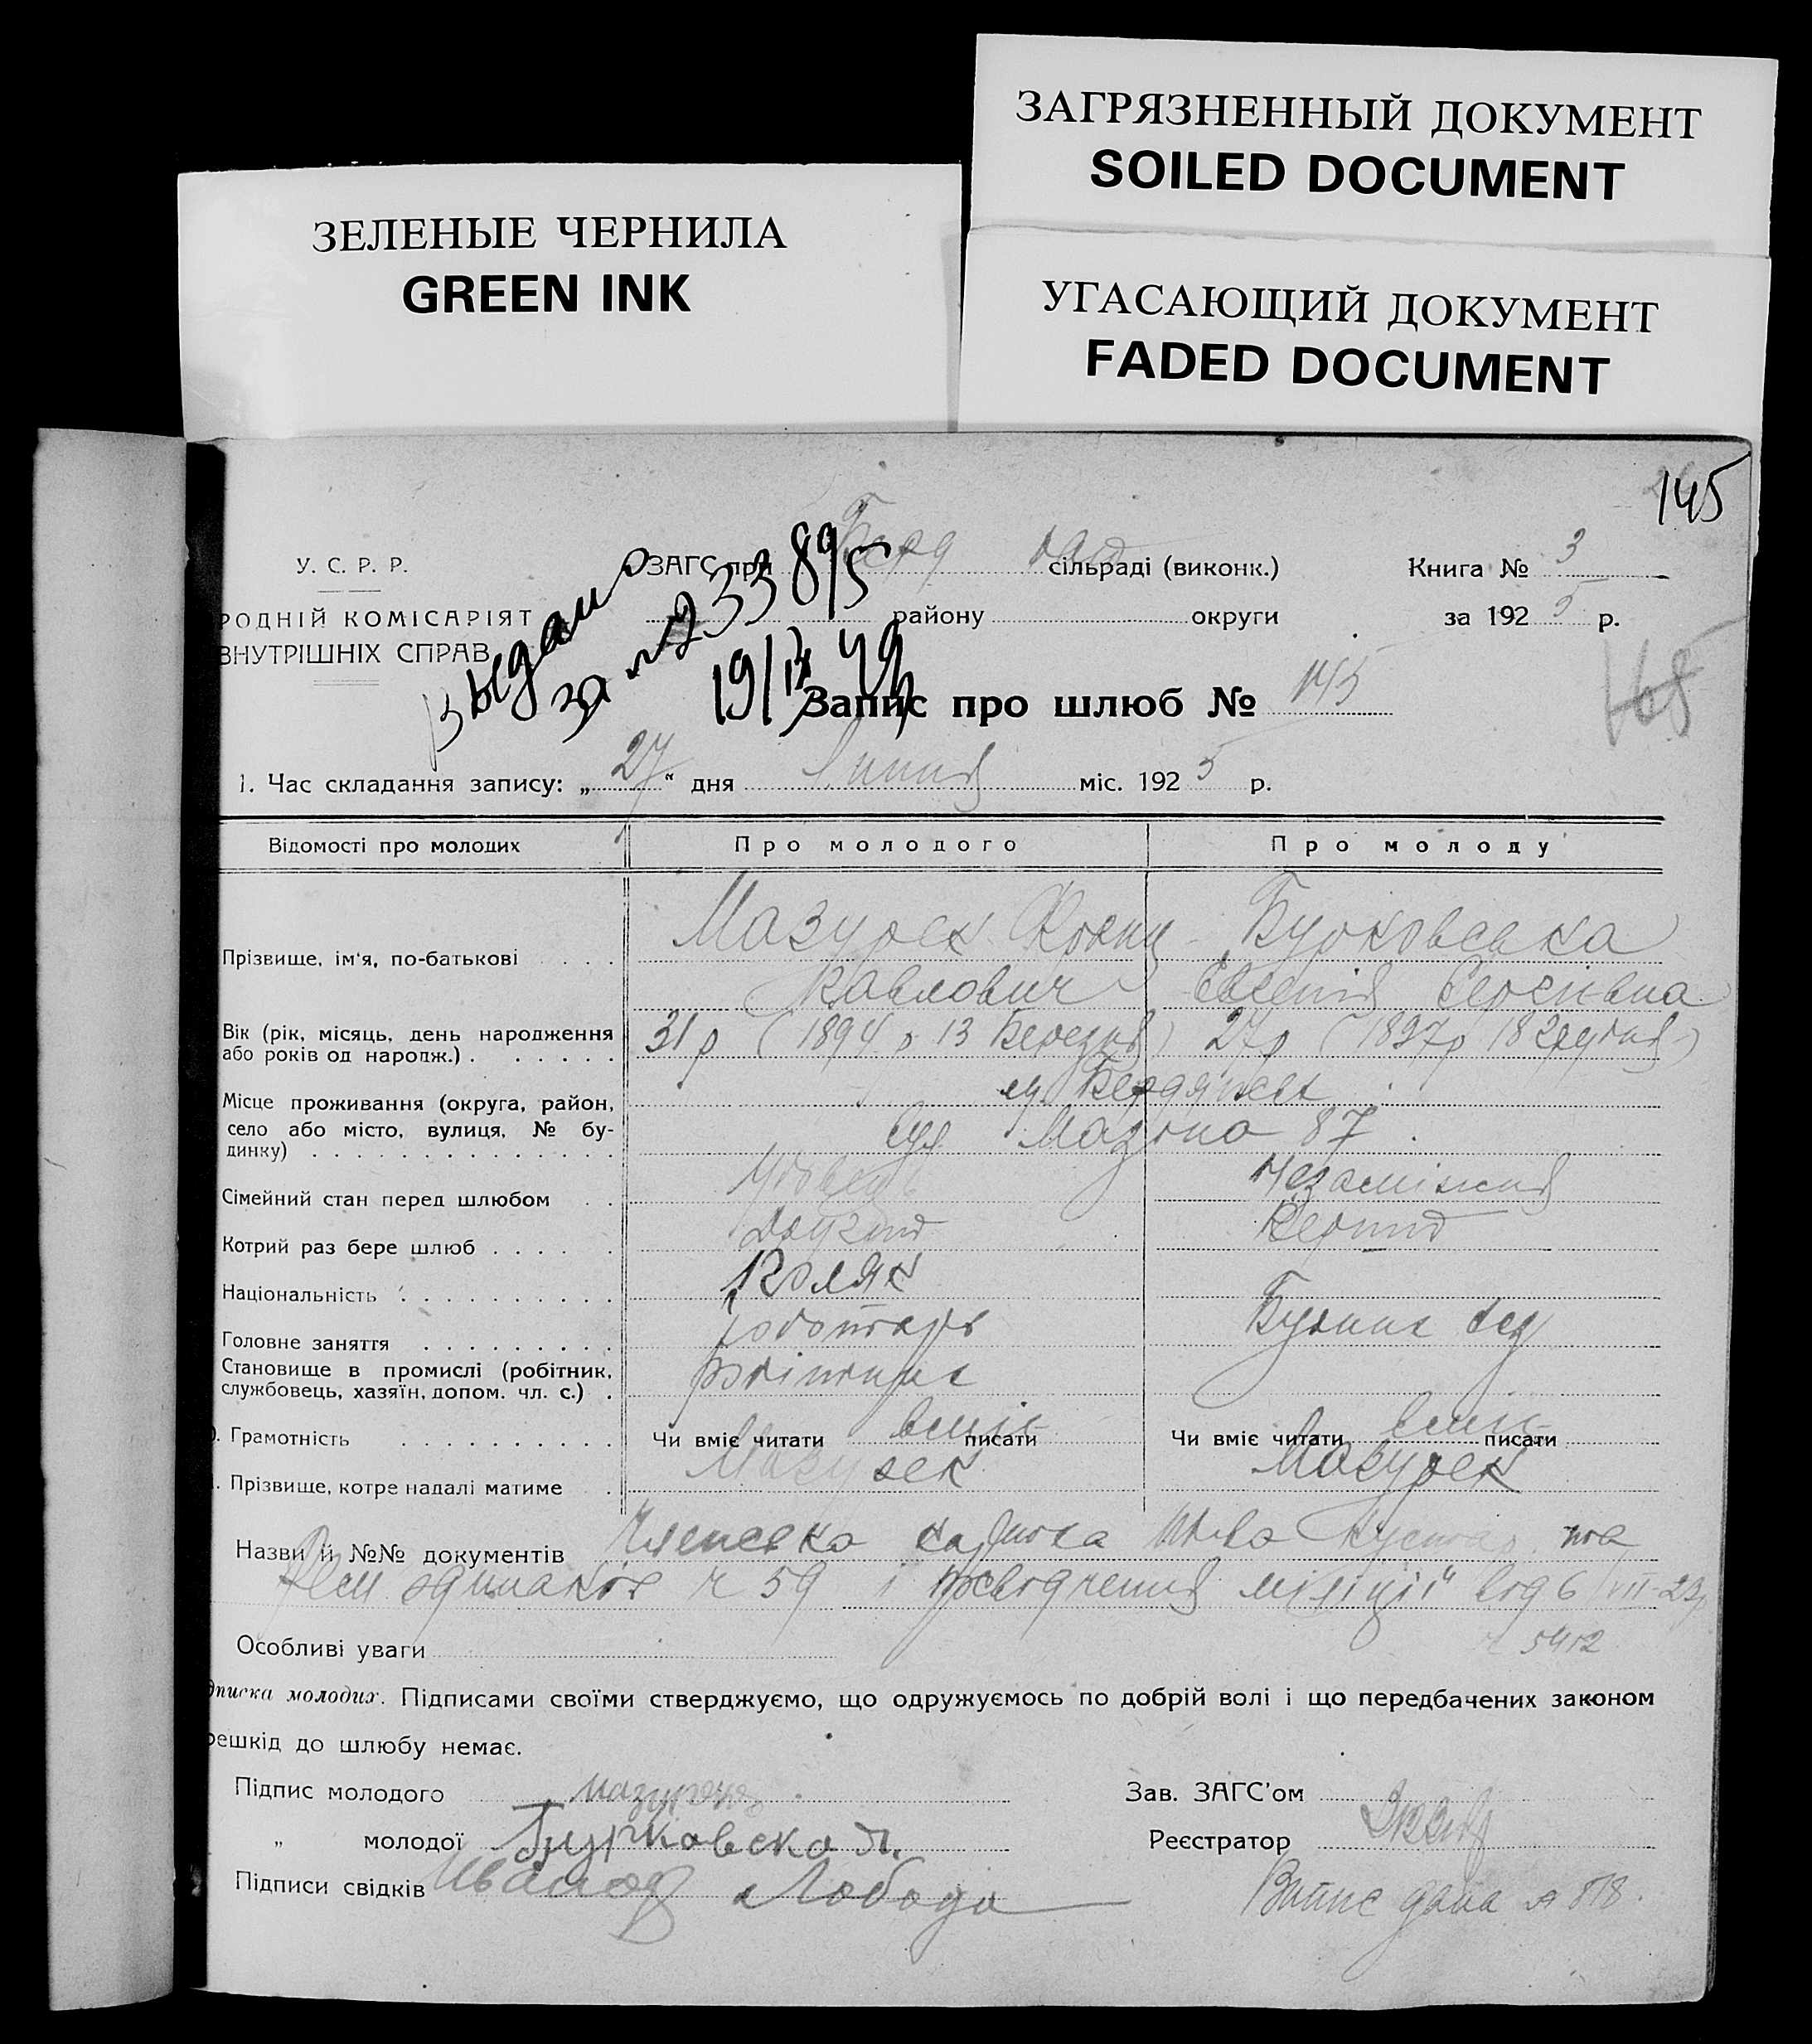 ЗАГРЯЗНЕННЫЙ ДОКУМЕНТ
SOILED DOCUMENT
ЗЕЛЕНЫЕ ЧЕРНИЛА
GREEN INK
УГАСАЮЩИЙ ДОКУМЕНТ
FADED DOCUMENT
145
У. С. Р. Р.
РОДНІЙ КОМІСАРІЯТ
ВНУТРІШНІХ СПРАВ
ЗАГС при Берд сільраді (виконк.)
Книга № 3
району округи
за 1925 р.
Выдано
за № 233895
19/ 49
Запис про шлюб № 145
165
1. Час складання запису: „27“ дня Липня міс. 1925 р.
Відомості про молодих
Про молодого
Про молоду
Прізвище, ім'я, по-батькові
Мазурек
Павлович
Бурковська
Євгенія Сергіївна
Вік (рік, місяць, день народження або років од народж.)
31 р (1894 р 13 Березня)
27 р (1897 р 18 грудня)
Місце проживання (округа, район, село або місто, вулиця, № будинку)
м. Бердянськ
вул 87
Сімейний стан перед шлюбом
Удовець
Незаміжня
Котрий раз бере шлюб
Другий
Перший
Національність
Поляк
Головне заняття
Становище в промислі (робітник, службовець, хазяїн, допом. чл. с.)
Робітник
Грамотність
Чи вміє читати вміє писати
Чи вміє читати вміє писати
Прізвище, котре надалі матиме
Мазурек
Мазурек
Назви й №№ документів Членська та
ч 59 і посвідчення міліції від 6/VIII-23р
5412
Особливі уваги
дписка молодих. Підписами своїми стверджуємо, що одружуємось по добрій волі і що передбачених законом
решкід до шлюбу немає.
Підпис молодого Мазурек
Зав. ЗАГС'ом
„ молодої Бурковска
Реєстратор
Підписи свідків Иванов Лобода
Випис дана № 818.